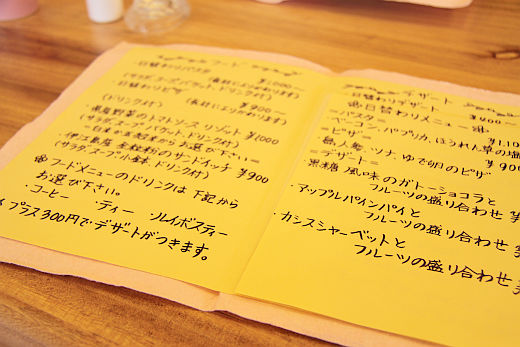 フード
日替わりパスタ ¥1000〜
(サラダ、スープ、バケット、ドリンク付)
¥900〜
(ドリンク付)
・県産野菜のトマトソースリゾット ¥1000
(サラダ、スープ、バケット、ドリンク付)
のサンドイッチ ¥900
(サラダ、スープ、小鉢、ドリンク付)
フードメニューのドリンクは下記から
お選び下さい。
・コーヒー ・ティー ・ルイボスティー
プラス300円で・デザートがつきます。
デザート
日替わりデザート ¥400〜
日替わりメニュー
=パスタ= ¥1,10
ベーコン、パプリカ、ほうれん草の塩
=ピザ= ¥90
ツナ、ゆで卵のピザ
=デザート=
黒糖風味のガトーショコラと
フルーツの盛り合わせ ¥
・アップルパインパイと
フルーツの盛り合わせ ¥
・カシスシャーベットと
フルーツの盛り合わせ ¥